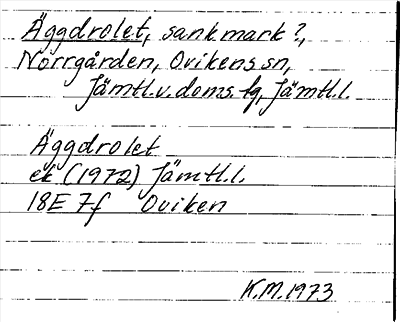 Äggdrolet, sank mark?,
Norrgården, Ovikens sn,
Jämtl.v.doms.fg, Jämtl.l.
Äggdrolet
ek (1972) Jämtl.l.
18E 7f Oviken
K.M. 1973